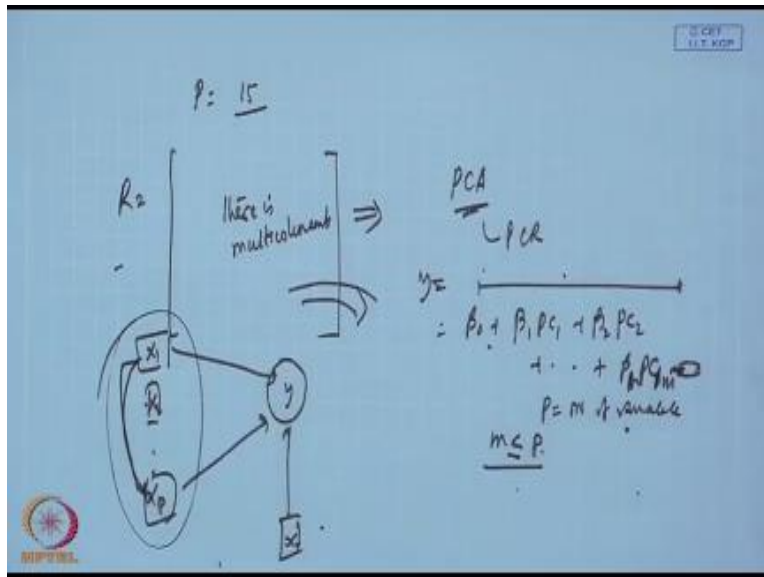 © CET
I.I.T. KGP
P: 15
R=
There is
multicolinearity
⇒
PCA
PCR
y=
= β₀ + β₁ PC₁ + β₂ PC₂
+ . . + βₚ PCₘ
p = no of variable
m ≤ p.
x₁
y
xₚ
NPTEL